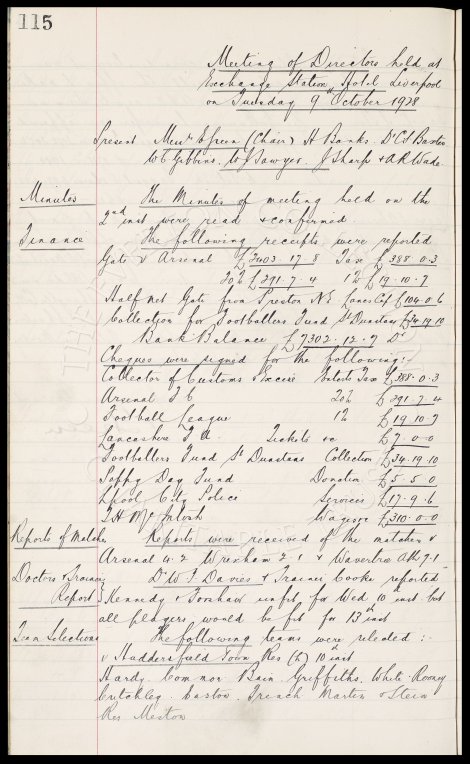 115
Meeting of Directors held at
Exchange Station Hotel Liverpool
on Tuesday 9th October 1928
Present Messrs E Green (Chair) H Banks. Dr C J Baxter
W C Gibbins. W J Sawyer. J Sharp & A R Wade.
Minutes The Minutes of meeting held on the
2nd inst were read & confirmed.
Finance The following receipts were reported
Gate v Arsenal £2403.17.8 Tax £388.0.3
20% £391.7.4 1% £19.10.7
Half net Gate from Preston N E Lancs Cup £104.0.6
Collection for Footballers Fund St Dunstans £34.19.10
Bank Balance £7302.12.7 Dr
Cheques were signed for the following:-
Collector of Customs & Excise Enterts Tax £388.0.3
Arsenal F C 20% £391.7.4
Football League 1% £19.10.7
Lancashire F A. Tickets &c £7.0.0
Footballers Fund St Dunstans Collection £34.19.10
Poppy Day Fund Donation £5.5.0
Lpool City Police Services £17.9.6
T H McIntosh Wages &c £310.0.0
Reports of Matches Reports were received of the matches v
Arsenal 4.2 Wrexham 2.1 & Wavertree Ath 7.1
Doctors & Trainers Report Dr W J Davies & Trainer Cooke reported
Kennedy & Forshaw unfit for Wed 10th inst but
all players would be fit for 13th inst
Team Selections The following teams were selected :-
v Huddersfield Town Res (h) 10th inst
Hardy. Common Bain. Griffiths. White. Rooney
Critchley. Easton. French Martin & Stein
Res Meston